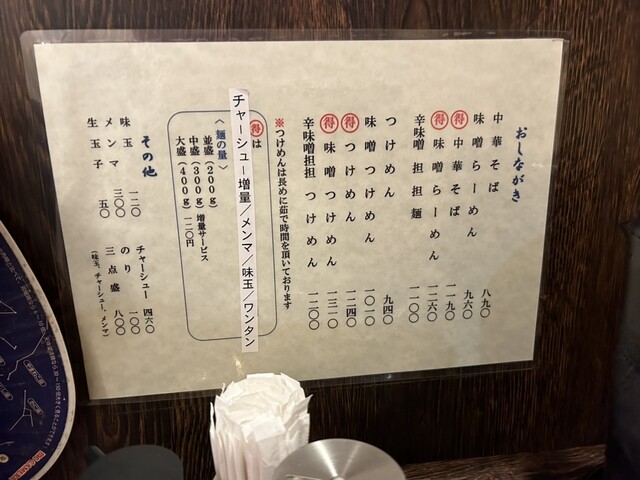 おしながき
中華そば 八九〇
味噌らーめん 九六〇
得 中華そば 一一九〇
得 味噌らーめん 一二六〇
辛味噌担担麺 一一〇〇
つけめん 九四〇
味噌つけめん 一〇一〇
得 つけめん 一二四〇
得 味噌つけめん 一三一〇
辛味噌担担つけめん 一二〇〇
※つけめんは長めに茹で時間を頂いております
得は
チャーシュー増量/メンマ/味玉/ワンタン
〈麺の量〉
並盛(200g)
中盛(300g)増量サービス
大盛(400g)一二〇円
その他
味玉 一二〇
メンマ 三〇〇
生玉子 五〇
チャーシュー 四六〇
のり 一〇〇
三点盛 八〇〇
(味玉、チャーシュー、メンマ)